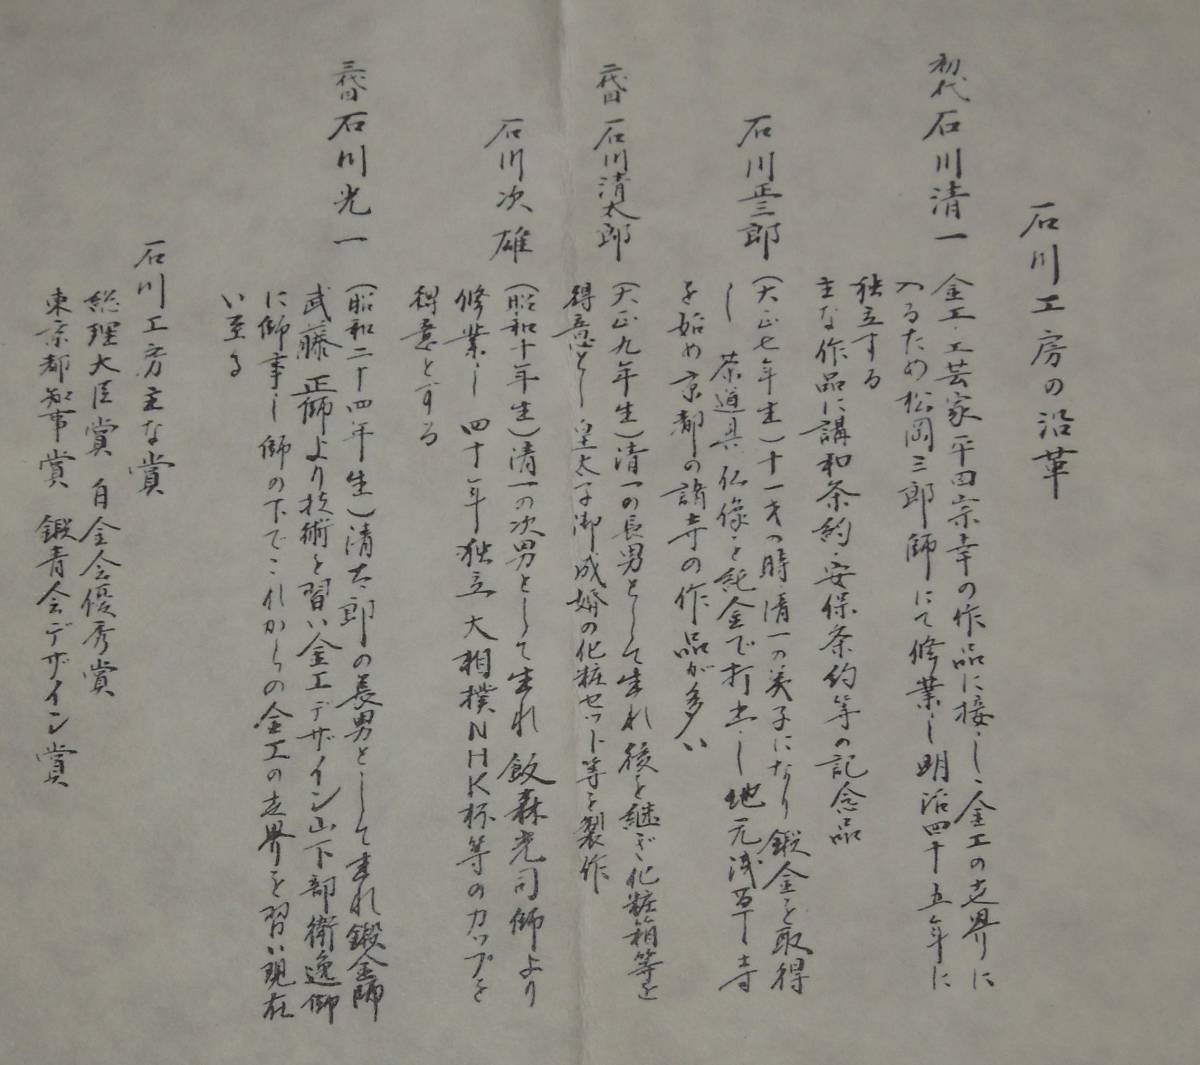 石川工房の沿革
初代 石川清一 金工・工芸家平田宗幸の作品に接し金工の世界に
入るため松岡三郎師にて修業し明治四十五年に
独立する
主な作品に講和条約・安保条約等の記念品
石川正三郎 (大正七年生)十一才の時清一の養子になり鍛金を取得
し 茶道具 仏像を純金で打出し地元浅草寺
を始め京都の諸寺の作品が多い
二代目 石川清太郎 (大正九年生)清一の長男として生れ後を継ぎ化粧箱等を
得意とし皇太子御成婚の化粧セット等を製作
石川次雄 (昭和十年生)清一の次男として生れ 飯森光司師より
修業し 四十一年 独立 大相撲NHK杯等のカップを
得意とする
三代目 石川光一 (昭和二十四年生)清太郎の長男として生れ鍛金師
武藤正師より技術を習い金工デザイン山下部衛逸師
に師事し師の下でこれからの金工の世界を習い現在
い至る
石川工房主な賞
総理大臣賞 白金会優秀賞
東京都知事賞 鍛青会デザイン賞